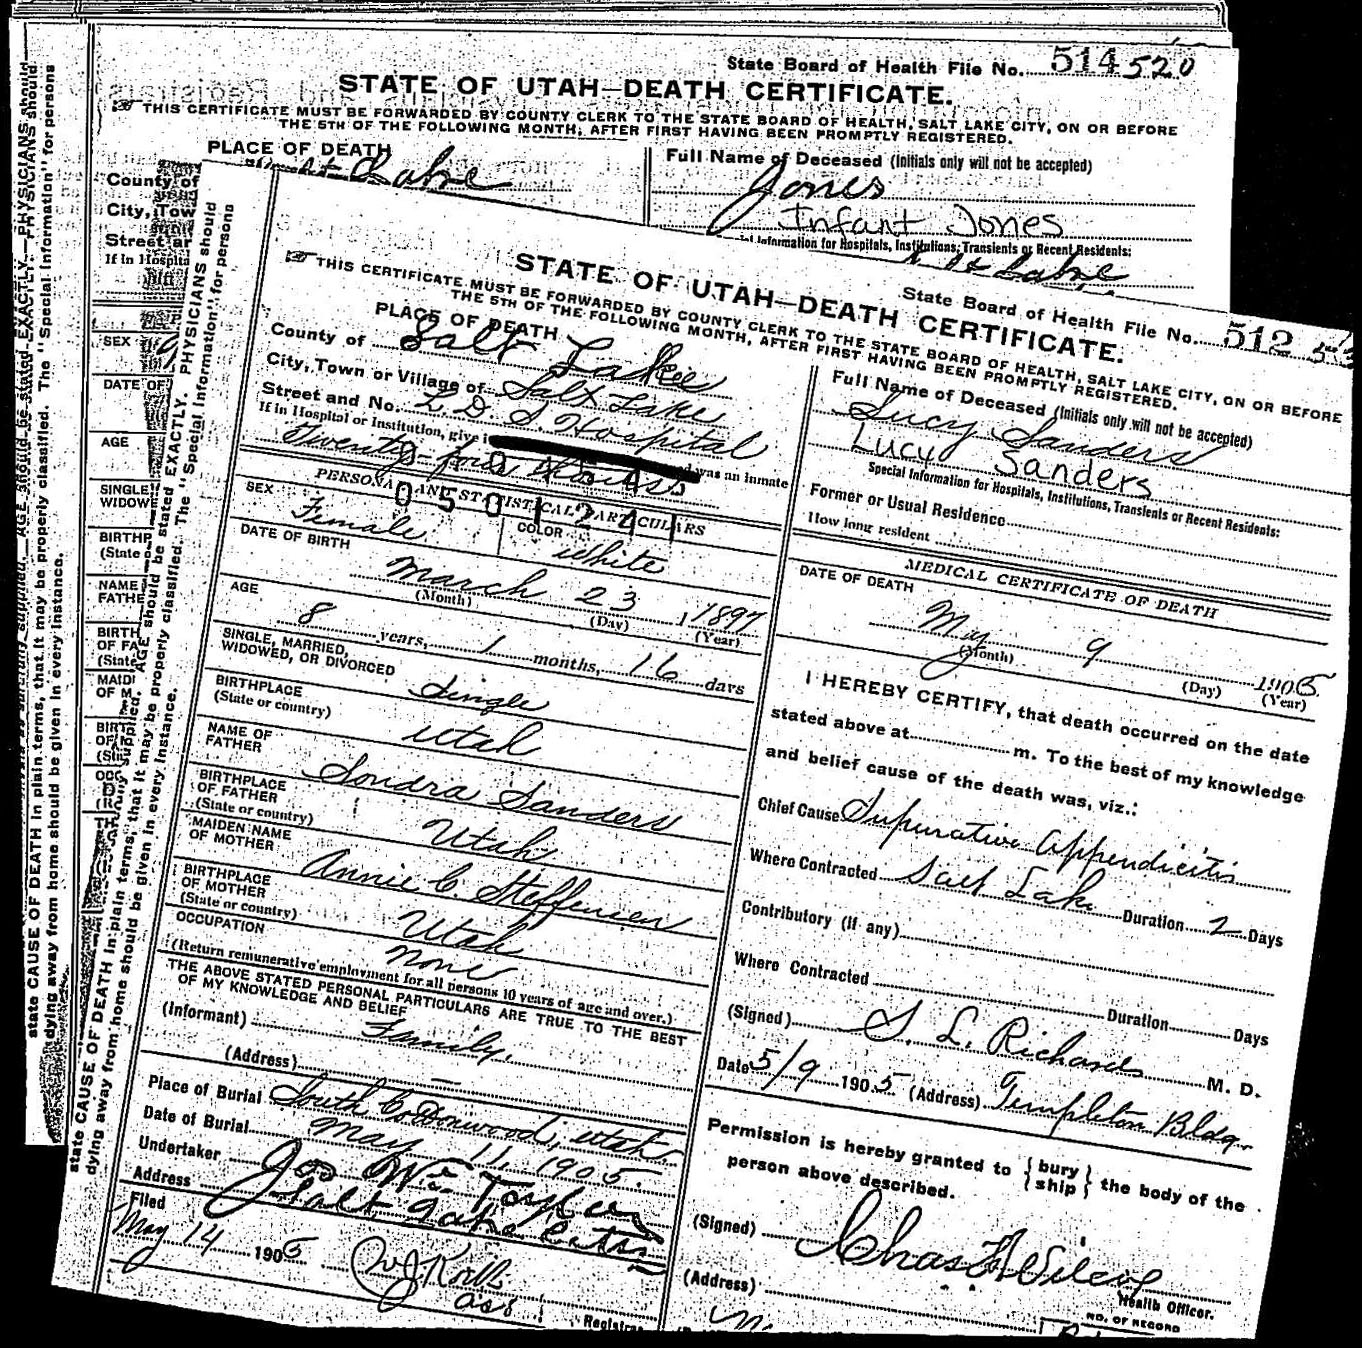 State Board of Health File No. 514 520
STATE OF UTAH—DEATH CERTIFICATE.
THIS CERTIFICATE MUST BE FORWARDED BY COUNTY CLERK TO THE STATE BOARD OF HEALTH, SALT LAKE CITY, ON OR BEFORE
THE 5TH OF THE FOLLOWING MONTH, AFTER FIRST HAVING BEEN PROMPTLY REGISTERED.
PLACE OF DEATH
Full Name of Deceased (Initials only will not be accepted)
County of Lake
Jones
City, Tow
Infant Jones
Street ar
Information for Hospitals, Institutions, Transients or Recent Residents:
If in Hospita
Lake
SEX
DATE OF
AGE
SINGLE
WIDOW
BIRTHP
(State o
NAME
FATHE
BIRTH
OF FA
(State
MAIDI
OF M
BIRT
OF
state CAUSE OF DEATH in plain terms, that it may be properly classified. The "Special Information" for persons
dying away from home should be given in every instance.
State Board of Health File No. 512
STATE OF UTAH—DEATH CERTIFICATE.
THIS CERTIFICATE MUST BE FORWARDED BY COUNTY CLERK TO THE STATE BOARD OF HEALTH, SALT LAKE CITY, ON OR BEFORE
THE 5TH OF THE FOLLOWING MONTH, AFTER FIRST HAVING BEEN PROMPTLY REGISTERED.
PLACE OF DEATH
County of Salt Lake
City, Town or Village of Salt Lake
Street and No. L. D. S. Hospital
If in Hospital or Institution, give i was an inmate
Twenty-four Hours
PERSONAL AND STATISTICAL PARTICULARS
SEX Female COLOR White
DATE OF BIRTH March 23 1 1897
(Month) (Day) (Year)
AGE 8 years, 1 months, 16 days
SINGLE, MARRIED,
WIDOWED, OR DIVORCED Single
BIRTHPLACE
(State or country) Utah
NAME OF
FATHER Sondra Sanders
BIRTHPLACE
OF FATHER
(State or country) Utah
MAIDEN NAME
OF MOTHER Annie C. Steffensen
BIRTHPLACE
OF MOTHER
(State or country) Utah
OCCUPATION none
(Return remunerative employment for all persons 10 years of age and over.)
THE ABOVE STATED PERSONAL PARTICULARS ARE TRUE TO THE BEST
OF MY KNOWLEDGE AND BELIEF
(Informant) Family.
(Address) —
Place of Burial South Cottonwood, Utah
Date of Burial May 11, 1905.
Undertaker Jos Wm Taylor
Address Salt Lake City
Filed
May 14 1905
Registrar
Full Name of Deceased (Initials only will not be accepted)
Lucy Sanders
Lucy Sanders
Special Information for Hospitals, Institutions, Transients or Recent Residents:
Former or Usual Residence
How long resident
MEDICAL CERTIFICATE OF DEATH
DATE OF DEATH
May 9 1905
(Month) (Day) (Year)
I HEREBY CERTIFY, that death occurred on the date
stated above at m. To the best of my knowledge
and belief cause of the death was, viz.:
Chief Cause Supurative Appendicitis
Where Contracted Salt Lake Duration 2 Days
Contributory (if any)
Where Contracted
Duration Days
(Signed) S. L. Richards M. D.
Date 5/9 1905 (Address) Templeton Bldg.
Permission is hereby granted to { bury ship } the body of the
person above described.
(Signed)
Health Officer.
(Address)
NO. OF RECORD
state CAUSE OF DEATH in plain terms, that it may be properly classified. AGE should be stated EXACTLY. PHYSICIANS should
dying away from home should be given in every instance. The "Special Information" for persons